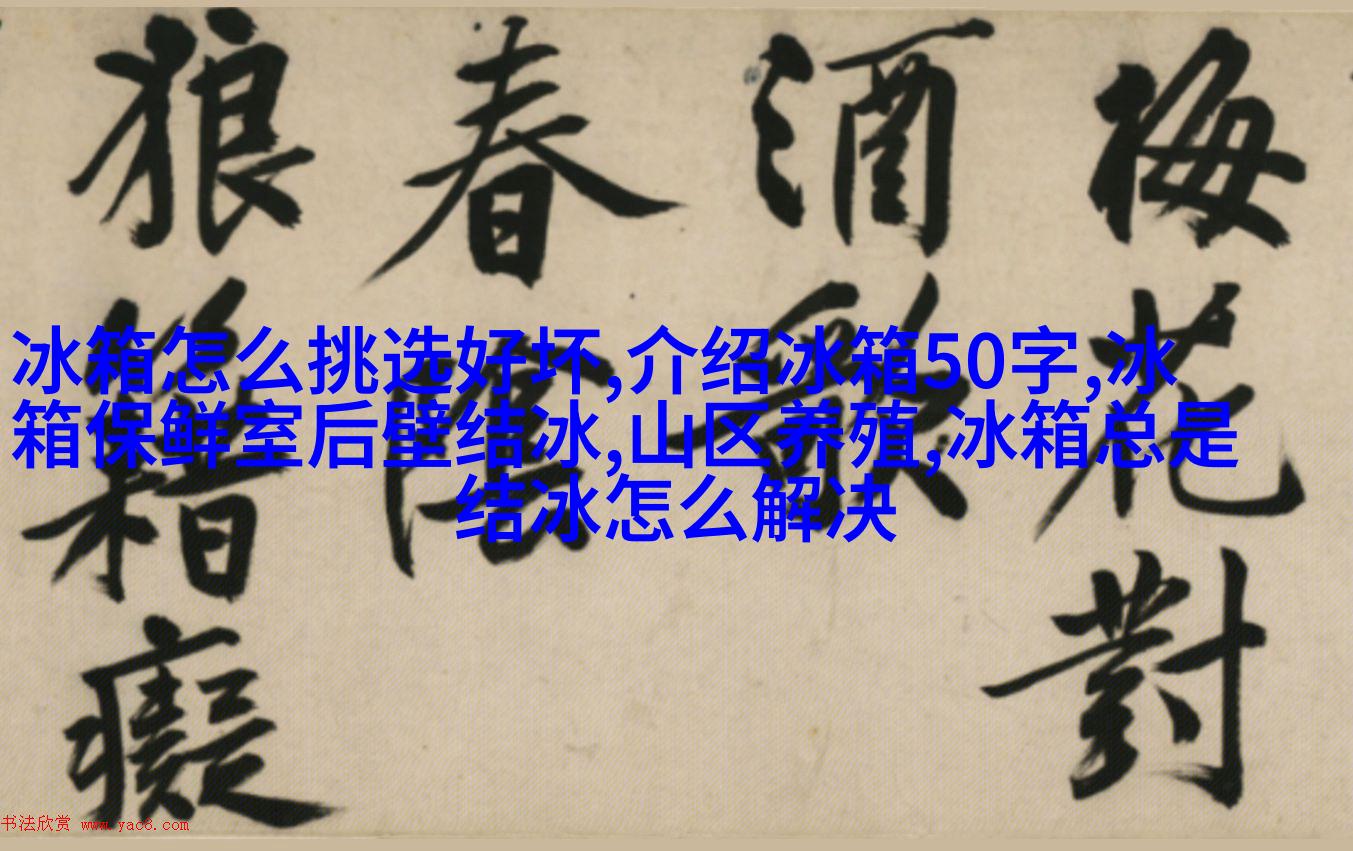 梅花對
酒
春
狼籍癡
冰箱怎么挑选好坏,介绍冰箱50字,冰
箱保鲜室后壁结冰,山区养殖,冰箱总是
结冰怎么解决
书法欣赏 www.yac8.com